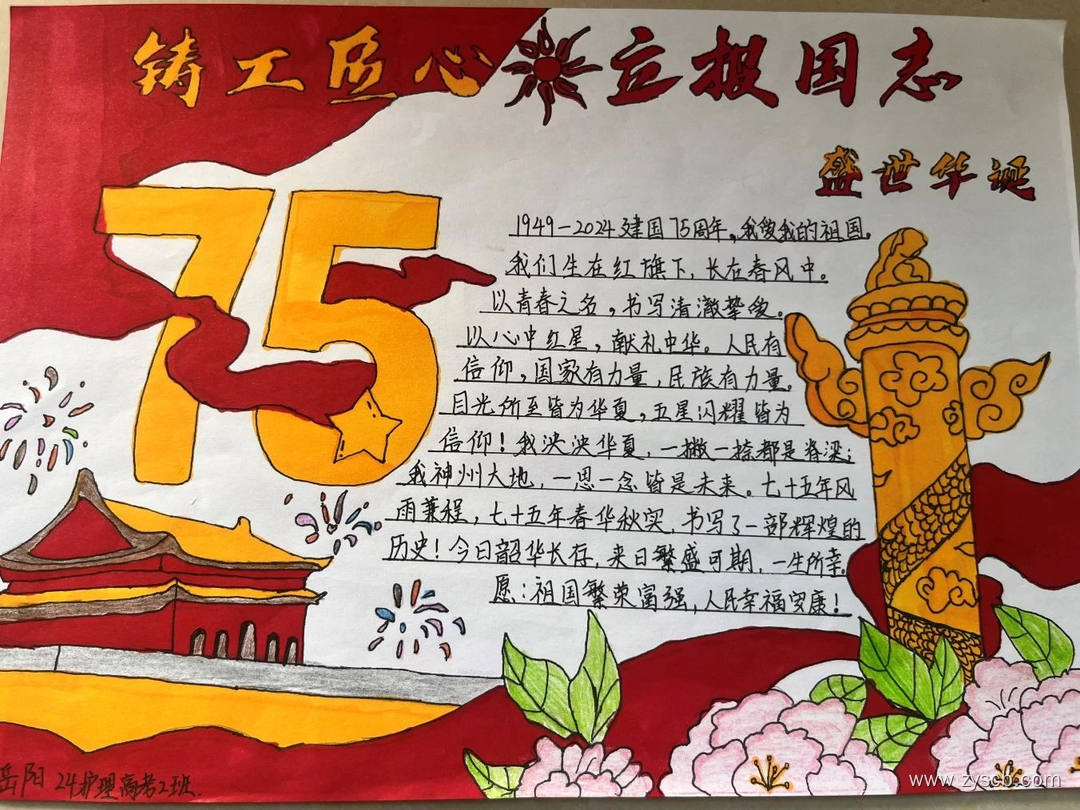 铸工匠心 立报国志
盛世华诞
75
1949-2024建国75周年,我爱我的祖国。
我们生在红旗下,长在春风中。
以青春之名,书写清澈挚爱。
以心中红星,献礼中华。人民有
信仰,国家有力量,民族有力量。
目光所至皆为华夏,五星闪耀皆为
信仰!我泱泱华夏,一撇一捺都是脊梁;
我神州大地,一思一念皆是未来。七十五年风
雨兼程,七十五年春华秋实,书写了一部辉煌的
历史!今日韶华长存,来日繁盛可期,一生所幸。
愿:祖国繁荣富强,人民幸福安康!
岳阳 24护理高考2班.
www.zyscb.com